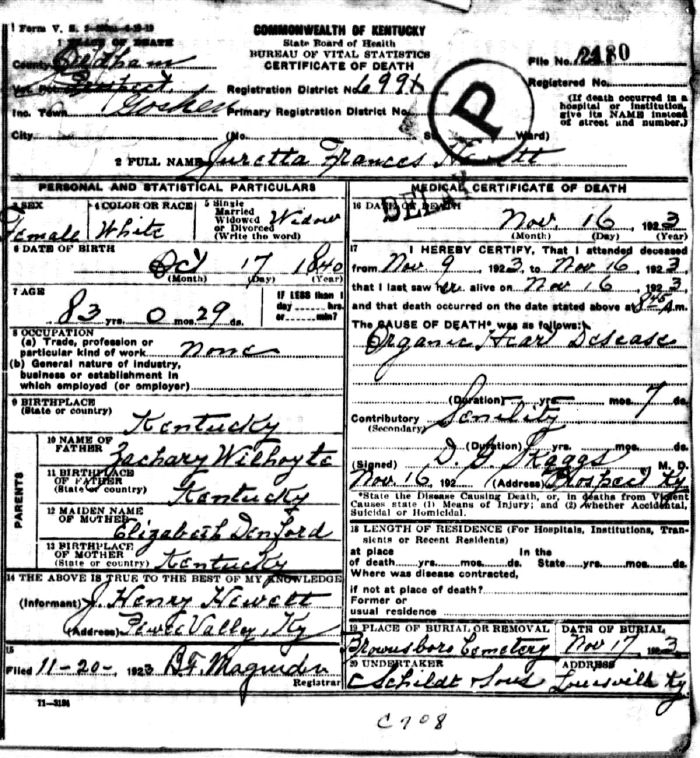 1 Form V. S.
COMMONWEALTH OF KENTUCKY
State Board of Health
BUREAU OF VITAL STATISTICS
CERTIFICATE OF DEATH
1 PLACE OF DEATH
County Oldham
Vot. Pct Prospect
Inc. Town Goshen
City (No. St. Ward)
File No.
Registration District No. 699X
Registered No.
Primary Registration District No.
(If death occurred in a
hospital or institution,
give its NAME instead
of street and number.)
P
2 FULL NAME Juretta Frances Hewett
DELAY
PERSONAL AND STATISTICAL PARTICULARS
3 SEX Female
4 COLOR OR RACE White
5 Single
Married
Widowed
or Divorced
(Write the word) Widow
6 DATE OF BIRTH
Oct 17 1840
(Month) (Day) (Year)
7 AGE
83 yrs. 0 mos. 29 ds.
If LESS than 1
day hrs.
or min?
8 OCCUPATION
(a) Trade, profession or
particular kind of work none
(b) General nature of industry,
business or establishment in
which employed (or employer)
9 BIRTHPLACE
(State or country) Kentucky
PARENTS
10 NAME OF
FATHER Zachary Wilhoyte
11 BIRTHPLACE
OF FATHER
(State or country) Kentucky
12 MAIDEN NAME
OF MOTHER Elizabeth Denford
13 BIRTHPLACE
OF MOTHER
(State or country) Kentucky
14 THE ABOVE IS TRUE TO THE BEST OF MY KNOWLEDGE
(Informant) J. Henry Hewett
(Address) Pewee Valley, Ky
15
Filed 11-20-, 1923 B.F. Magruder
Registrar
11-3184
MEDICAL CERTIFICATE OF DEATH
16 DATE OF DEATH
Nov. 16, 1923
(Month) (Day) (Year)
17 I HEREBY CERTIFY, That I attended deceased
from Nov 9 1923, to Nov 16, 1923
that I last saw her alive on Nov 16, 1923,
and that death occurred on the date stated above at 8 45 A.m.
The CAUSE OF DEATH* was as follows:
Organic Heart Disease
(Duration) yrs. mos. 7 ds.
Contributory Senility
(Secondary)
(Duration) yrs. mos. ds.
(Signed) D. G Skaggs M. D.
Nov. 16, 192 (Address) Prospect Ky
*State the Disease Causing Death, or, in deaths from Violent
Causes state (1) Means of Injury; and (2) whether Accidental,
Suicidal or Homicidal.
18 LENGTH OF RESIDENCE (For Hospitals, Institutions, Tran-
sients or Recent Residents)
at place In the
of death yrs. mos. ds. State yrs. mos. ds.
Where was disease contracted,
if not at place of death?
Former or
usual residence
19 PLACE OF BURIAL OR REMOVAL
Brownsboro Cemetery
DATE OF BURIAL
Nov 17, 1923
20 UNDERTAKER
C Schildt & Sons
ADDRESS
Louisville Ky
C708